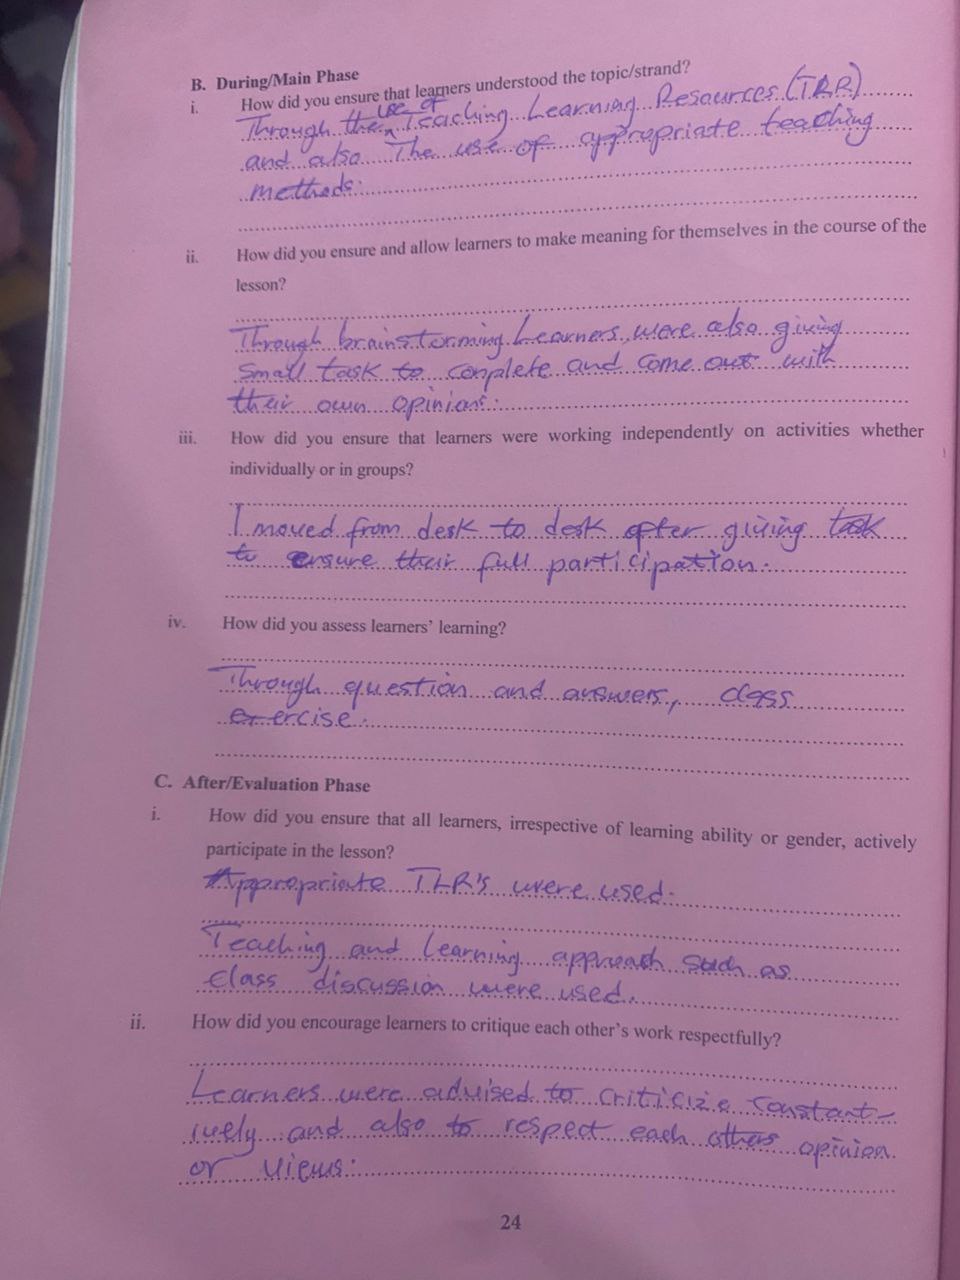 B. During/Main Phase
i. How did you ensure that learners understood the topic/strand?
Through the use of Teaching Learning Resources (TLR)
and also The use of appropriate teaching
methods.
ii. How did you ensure and allow learners to make meaning for themselves in the course of the
lesson?
Through brainstorming Learners were also giving
Small task to conplete and come out with
their own opinions.
iii. How did you ensure that learners were working independently on activities whether
individually or in groups?
I moved from desk to desk after giving task
to ensure their full participation.
iv. How did you assess learners' learning?
Through question and answers, class
exercise.
C. After/Evaluation Phase
i. How did you ensure that all learners, irrespective of learning ability or gender, actively
participate in the lesson?
Appropriate TLR's were used.
Teaching and Learning approach such as
class discussion were used.
ii. How did you encourage learners to critique each other's work respectfully?
Learners were advised to criticize constant-
ively and also to respect each others opinion
or views.
24